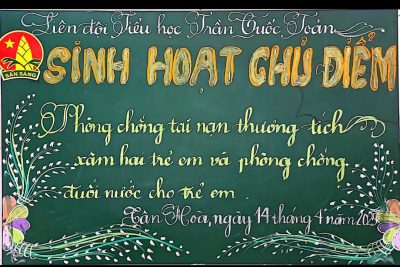 Liên đội Tiểu học Trần Quốc Toản
SINH HOẠT CHỦ ĐIỂM
SẴN SÀNG
Phòng chống tai nạn thương tích
xâm hại trẻ em và phòng chống
đuối nước cho trẻ em
Tân Hoa, ngày 14 tháng 4 năm 2025